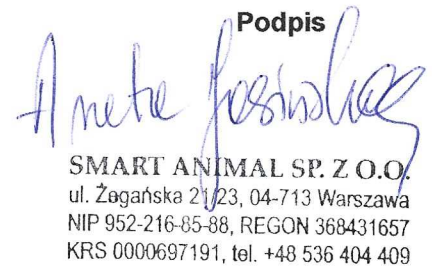 Podpis
Aneta Jasińska
SMART ANIMAL SP. Z O.O.
ul. Żegańska 21/23, 04-713 Warszawa
NIP 952-216-85-88, REGON 368431657
KRS 0000697191, tel. +48 536 404 409